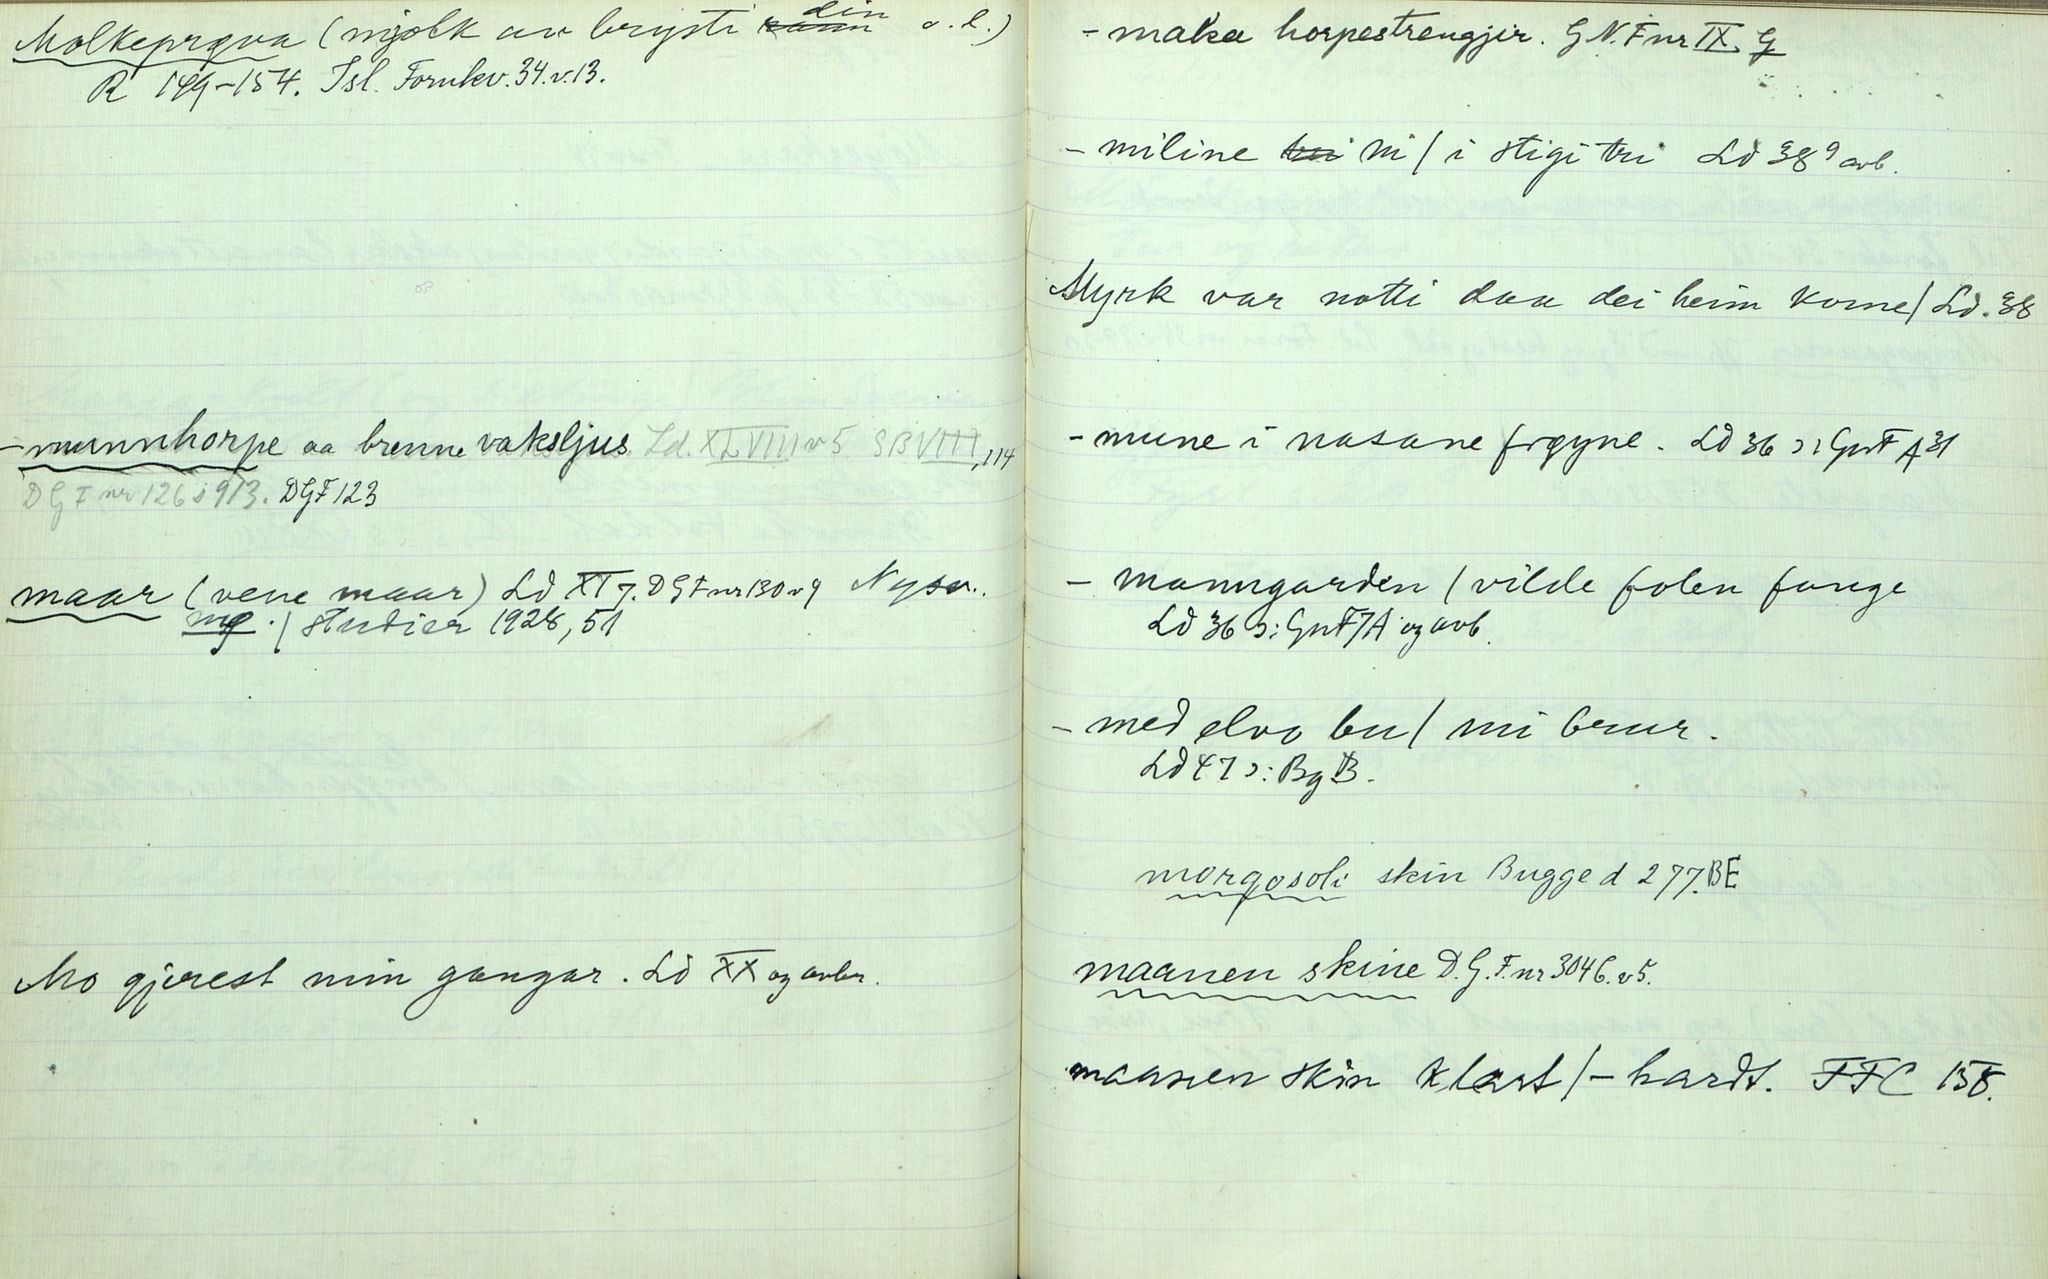 Molkeprøva (mjølk av brysti din o.l.)
R 149-154. Isl. Fornkv. 34. v. 13.
- munnhorpe aa brenne vaksljus. Ld. XLVIII v 5 SB VIII, 114
DGF nr 126 s 913. DGF 123
maar (vene maar) Ld XI 7. DGF nr 130 v 9 Nysv.
studier 1928, 51
Mo gjerest min gangar. Ld XX og avbr.
- maka horpestrengjir. G N. F nr IX. G
- miline ni / i stigi tri Ld 38 9 avb.
Myrk var notti daa dei heim kome / Ld. 38
- mune i nasane frøyne. Ld 36 ɔ: GnF A 31
- manngarden / vilde folen fange
Ld 36 ɔ: GnF 7A og avb.
- med elvo bu / mi brur.
Ld 47 ɔ: Bg B.
morgosoli skin Bugge d 277. BE
maanen skine D.G.F. nr 304 C. v 5.
maanen skin klart / - hardt. FFC 158.